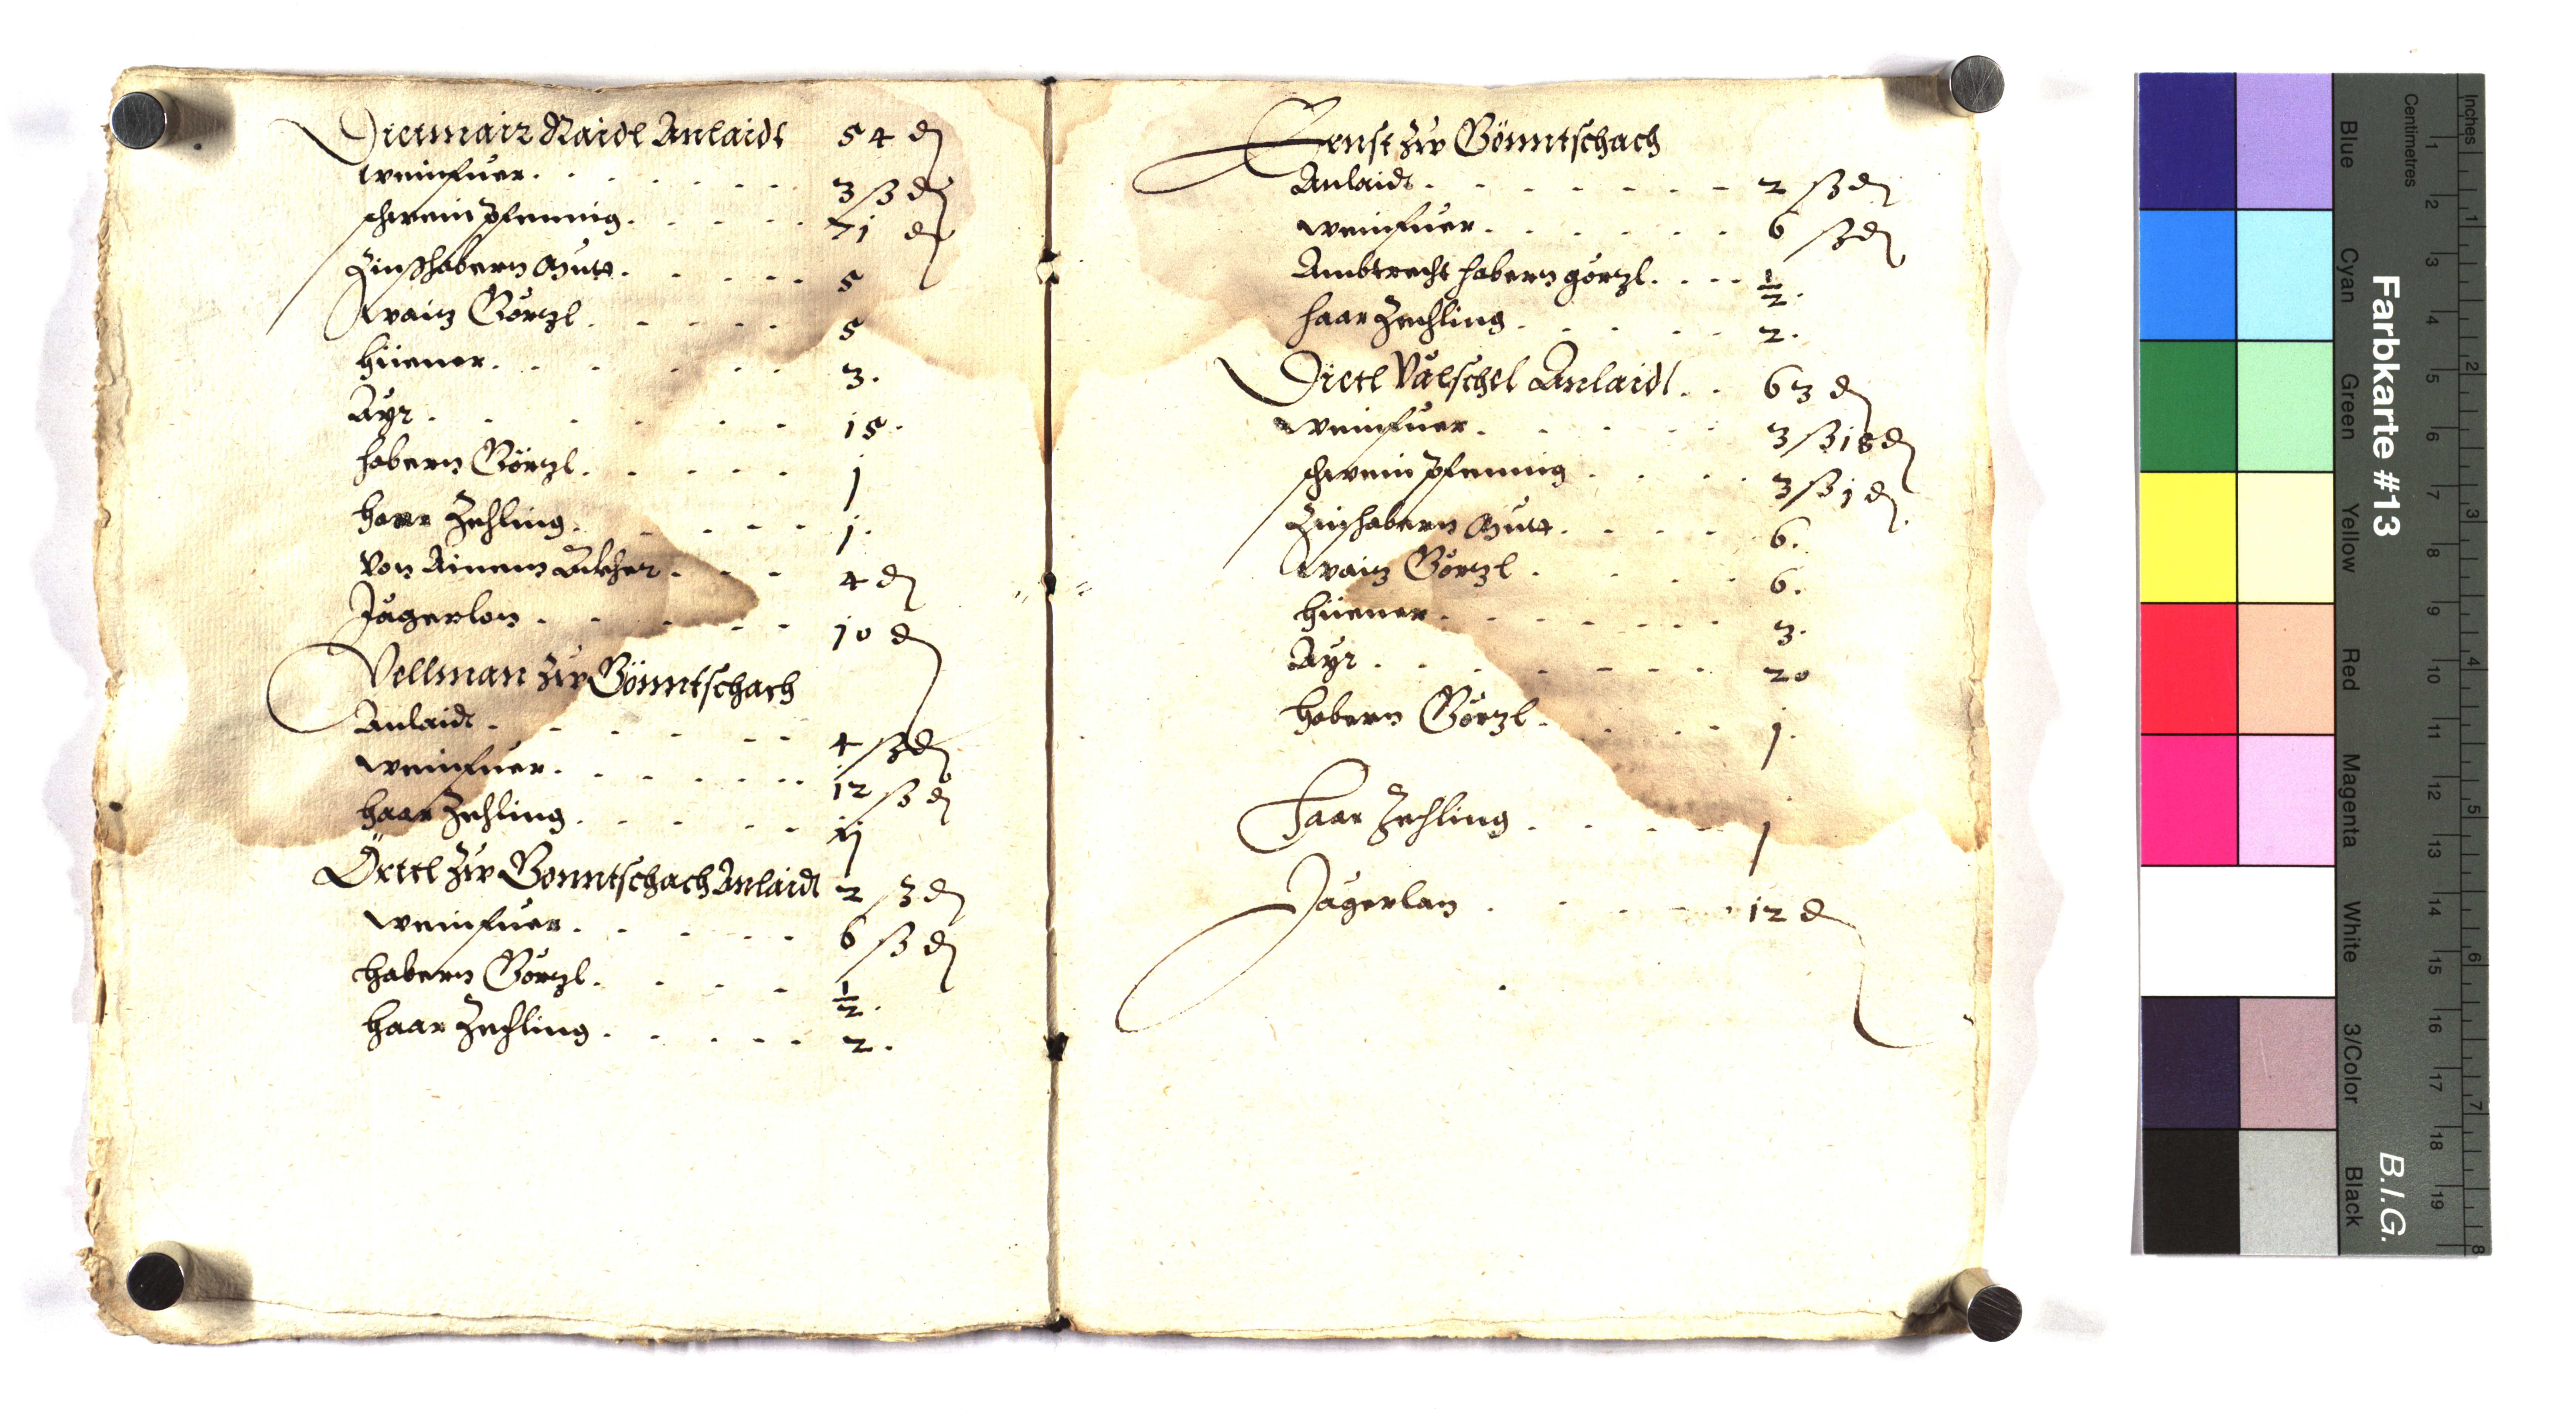 Dietmair Raidl Anlaidt 54 d
Weinfuer. 3 ß d
schwein Pfenning. 71 d
Zinßhabern Mutt. 5
Waiz Görzl. 5
hüener. 3.
Ayr. 15.
habern Görzl. 1
haar Zehling. 1.
Von Ainem 4 d
Jägerlon. 10 d
Vellman zw Gönntschach
Anlaidt. 4 ß d
Weinfuer. 12 ß d
haar Zehling. ij
Örttl zw Gonntschach Anlaidt 2 ß d
Weinfuer. 6 ß d
habern Görzl. 1/2.
haar Zechling. 2.
Ernst zw Gönntschach
Anlaidt. 2 ß d
Weinfuer. 6 ß d
Ambtrecht habern görzl. 1/2.
haar Zechling. 2.
Dietl Välschel Anlaidt. 63 d
Weinfuer. 3 ß 18 d
schwein Pfenning 3 ß 1 d
Zinshabern Mutt. 6.
Waiz Görzl. 6.
hüener. 3.
Ayr. 20
habern Görzl. 1.
Haar Zehling. 1
Jägerlan. 12 d
Farbkarte #13
B.I.G.
Blue Cyan Green Yellow Red Magenta White 3/Color Black
Centimetres 1 2 3 4 5 6 7 8 9 10 11 12 13 14 15 16 17 18 19
Inches 1 2 3 4 5 6 7 8